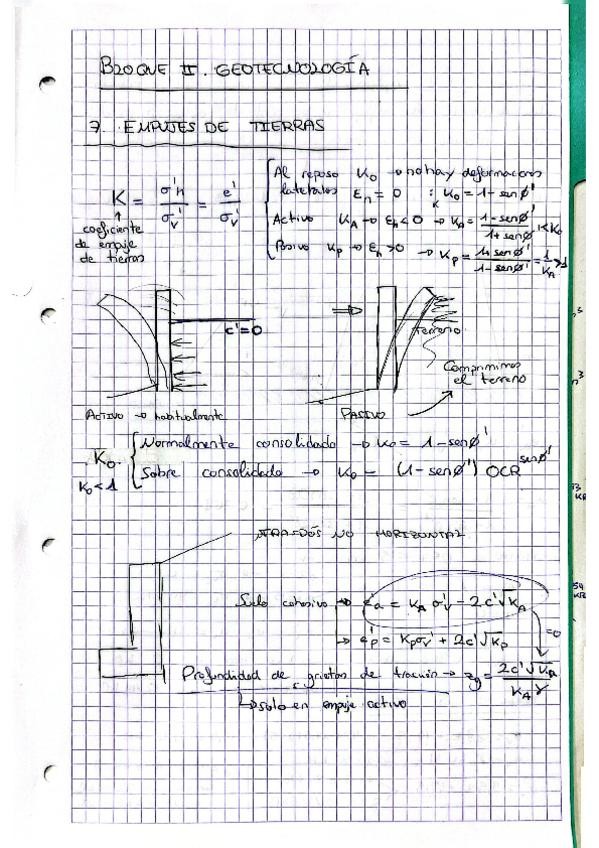 BLOQUE II. GEOTECNOLOGÍA
7. EMPUJES DE TIERRAS
K = σ'h / σv' = e' / σv'
coeficiente
de empuje
de tierras
Al reposo K₀ → no hay deformacions
laterales εh = 0 : K₀ = 1 - senφ'
Activo KA → εh < 0 → KA = (1 - senφ') / (1 + senφ') < K₀
Pasivo Kp → εh > 0 → Kp = (1 + senφ') / (1 - senφ') = 1/KA > 1
c' = 0
terreno
Comprimimos
el terreno
ACTIVO → habitualmente
PASIVO
K₀.
K₀ < 1
Normalmente consolidado → K₀ = 1 - senφ'
Sobre consolidado → K₀ = (1 - senφ') OCR^senφ'
TRASDÓS NO HORIZONTAL
Suelo cohesivo → e'a = KA σv' - 2c'√KA
= 0
→ e'p = Kpσv' + 2c'√Kp
Profundidad de grietas de tracción → zg = 2c'√KA / KA γ
↳ solo en empuje activo